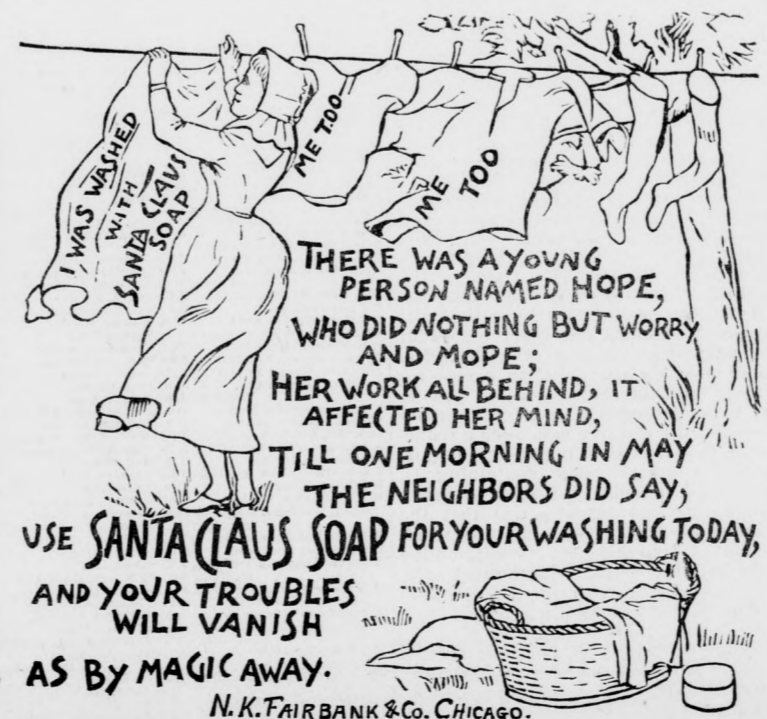 I WAS WASHED
WITH
SANTA CLAUS
SOAP
ME TOO
ME TOO
THERE WAS A YOUNG
PERSON NAMED HOPE,
WHO DID NOTHING BUT WORRY
AND MOPE;
HER WORK ALL BEHIND, IT
AFFECTED HER MIND,
TILL ONE MORNING IN MAY
THE NEIGHBORS DID SAY,
USE SANTA CLAUS SOAP FOR YOUR WASHING TODAY,
AND YOUR TROUBLES
WILL VANISH
AS BY MAGIC AWAY.
N. K. FAIRBANK & CO. CHICAGO.